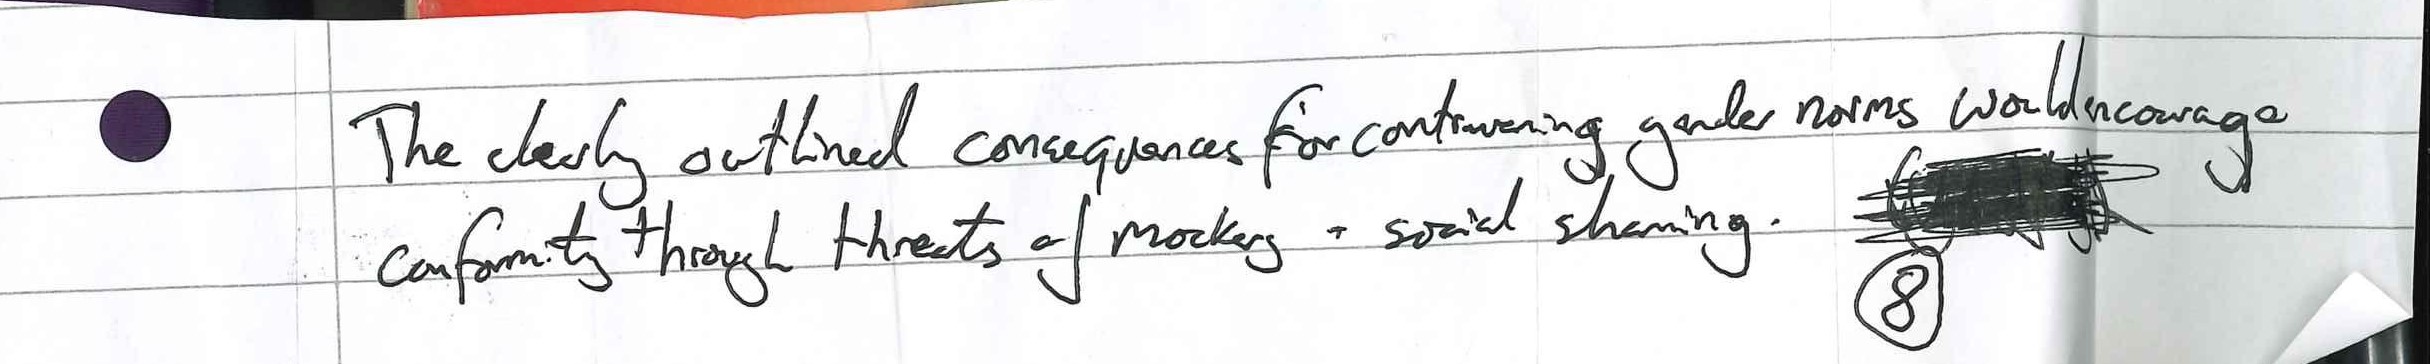 The clearly outlined consequences for contravening gender norms would encourage
conformity through threats of mockery + social shaming.
8